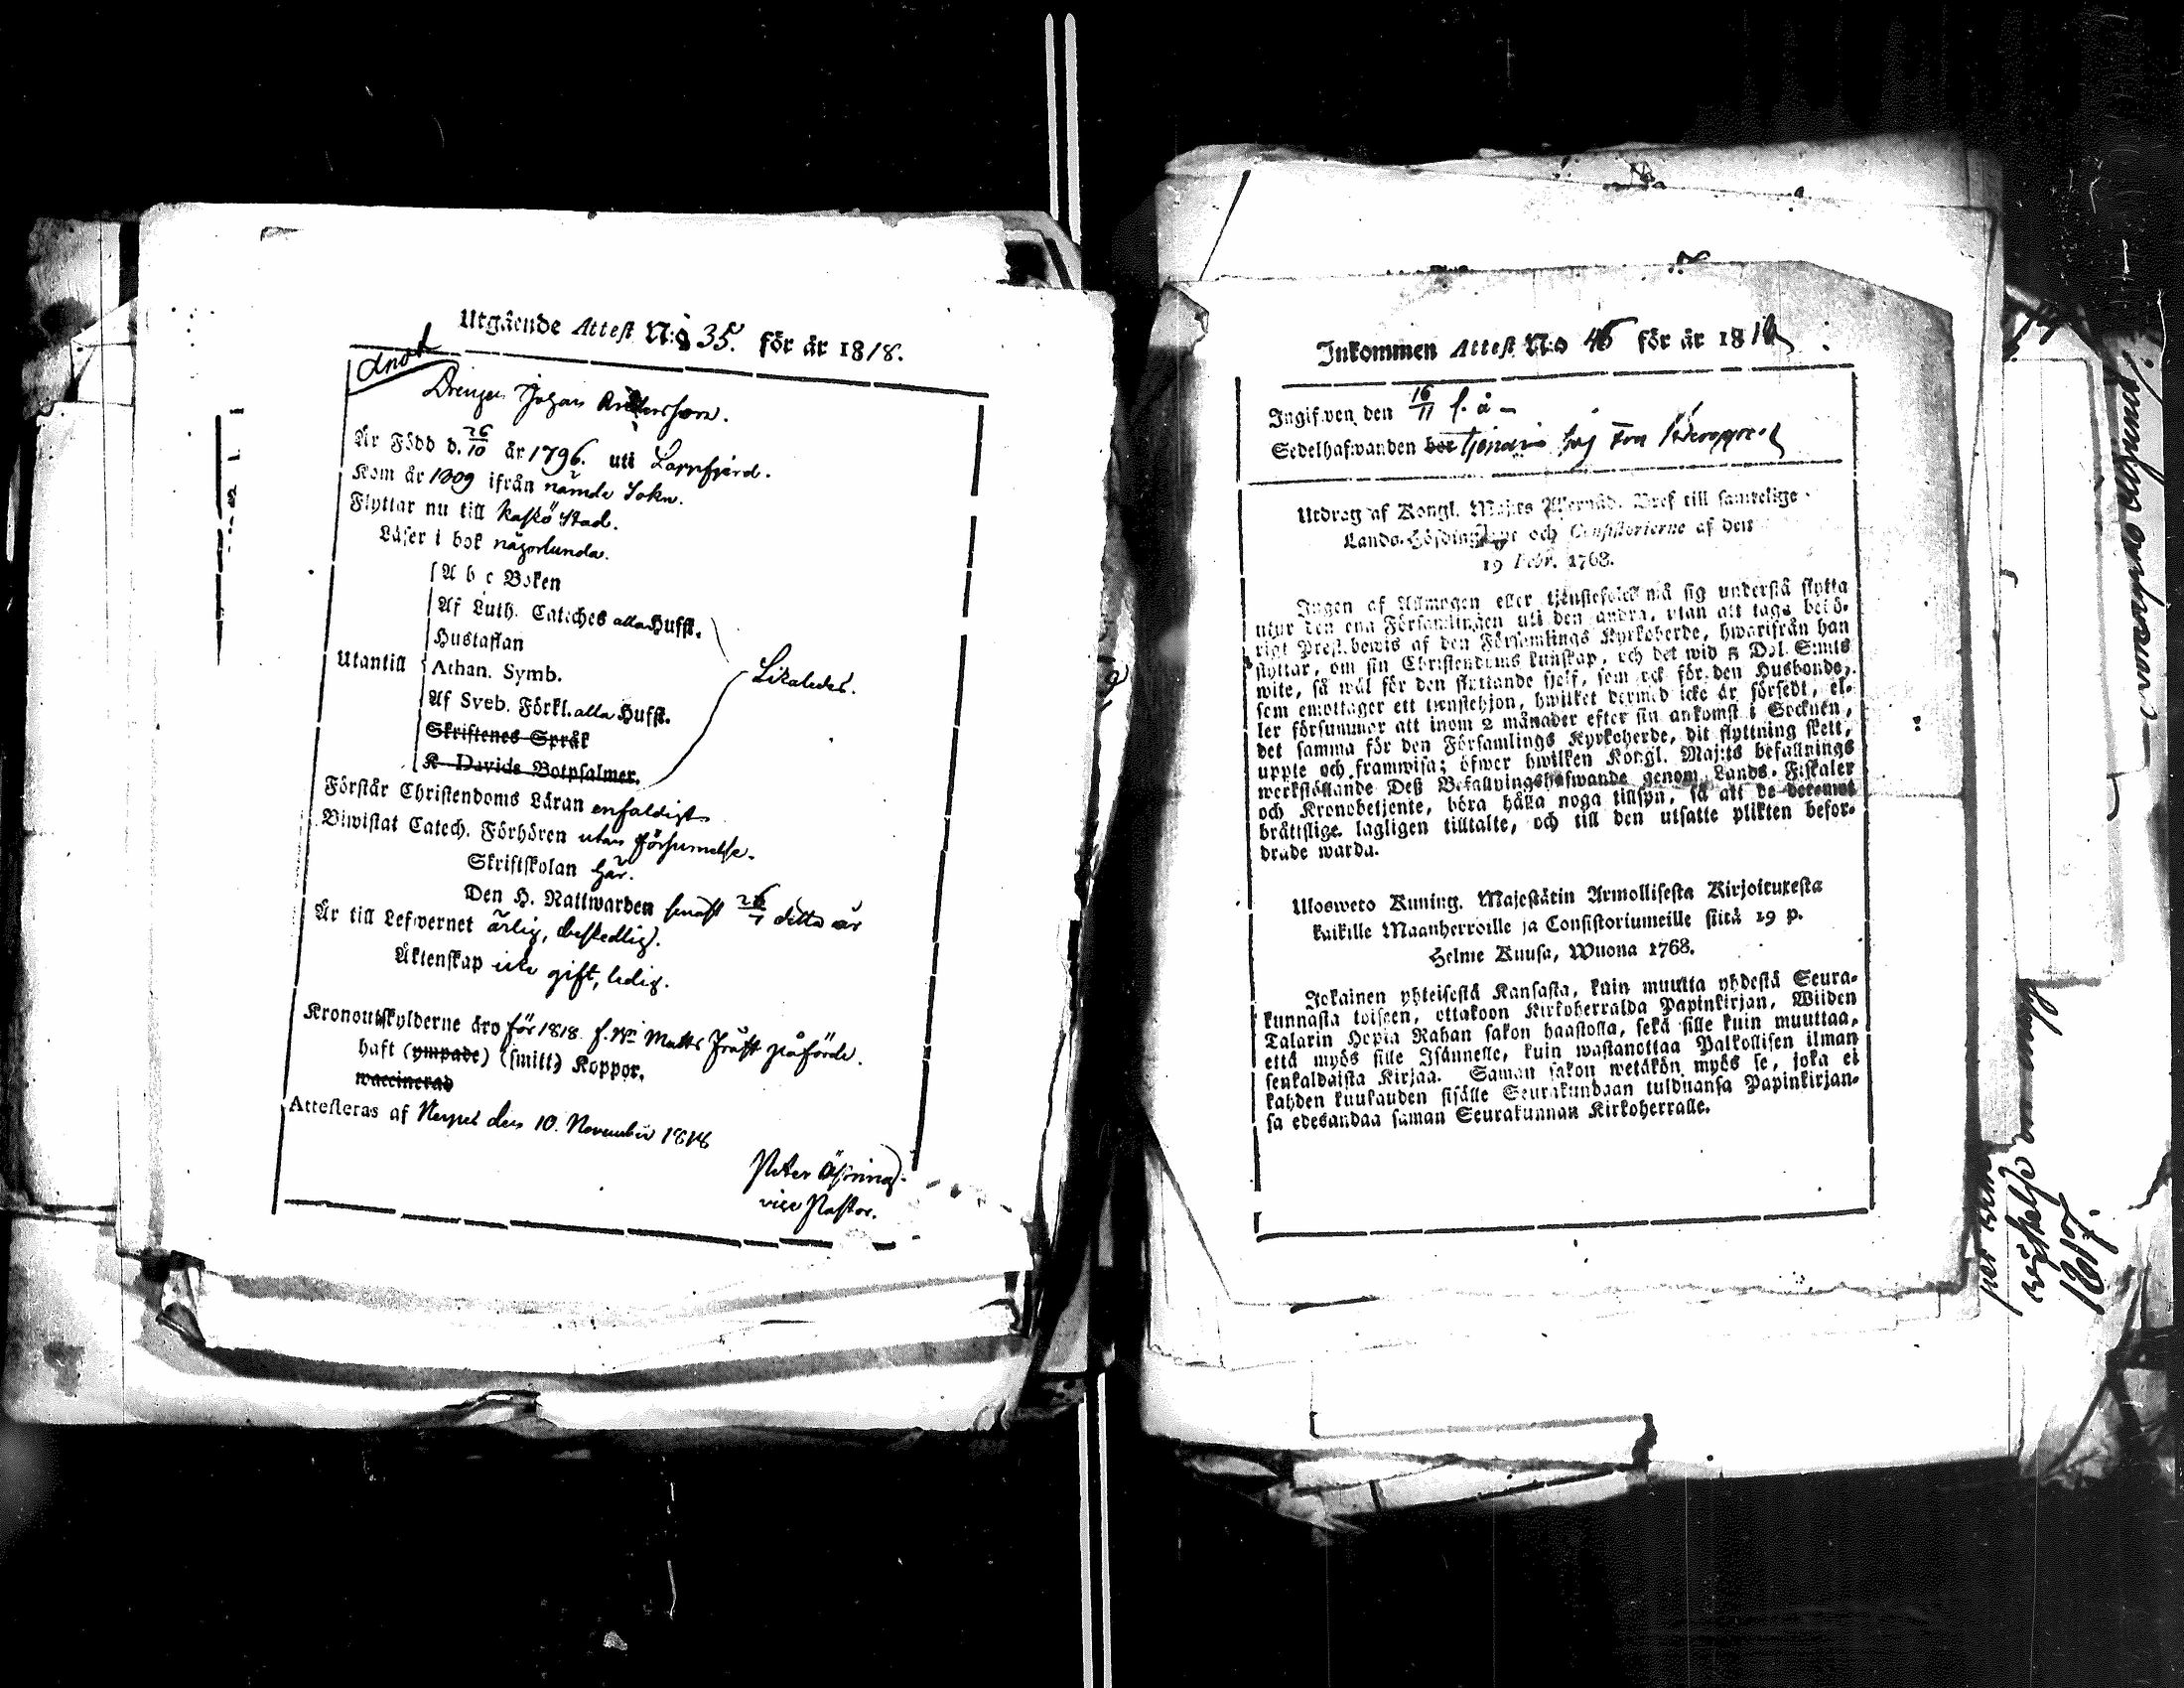 Utgående Attest N:o 35. för år 1818.
Drengen Johan Andersson.
Är Född d. 26/10 år 1796. uti Lappfjerd.
Kom år 1809 ifrån nämde Sokn.
Flyttar nu till Kaskö Stad.
Läser i bok någorlunda.
A b c Boken
Af Luth. Cateches alla Hufst.
Hustaflan
Utantill Athan. Symb.
Likaledes.
Af Sveb. Förkl. alla Hufst.
Skriftenes Språk
K Davids Botpsalmer.
Förstår Christendoms Läran enfaldigt
Biwistat Catech. Förhören utan försumelse.
Skriftskolan här.
Den H. Nattwarden senast 26/7 detta år
Är till Lefwernet ärlig, beskedlig.
Äktenskap icke gift, ledig.
Kronoutskylderne äro för 1818 Matts påförde.
haft (ympade) (smitt) Koppor.
waccinerad
Attesteras af Nerpes den 10. November 1818
Peter
vice Pastor.
Inkommen Attest N:o 46 för år 1818
Ingifven den 16/11 s. å –
Sedelhafwanden bor
Utdrag af Kongl. Maj:ts Allernåd. Bref till samtelige
Lands-Höfdingarne och Consistorierne af den
19 Febr. 1768.
Ingen af Allmogen eller tjenstefolck må sig understå flytta
utur den ena Församlingen uti den andra, utan att taga behö-
rigt Prest.bewis af den Församlings Kyrkoherde, hwarifrån han
flyttar, om sin Christendoms kunskap, och det wid 5 Dal. Smts
wite, så wäl för den flyttande sjelf, som ock för den Husbonde,
som emottager ett tienstehjon, hwilket dermed icke är försedt, el-
ler försummar att inom 2 månader efter sin ankomst i Socknen,
det samma för den Församlings Kyrkoherde, dit flyttning skett,
uppte och framwisa; öfwer hwilken Kongl. Maj:ts befallnings
werkställande Deß Befallningshafwande genom Lands-Fiskaler
och Kronobetjente, böra hålla noga tillsyn, så att de deremot
bråttslige lagligen tilltalte, och till den utsatte plikten befor-
drade warda.
Ulosweto Kuning. Majestätin Armollisesta Kirjoituxesta
kaikille Maanherroille ja Consistoriumeille siitä 19 p.
Helme Kuusa, Wuona 1768.
Jokainen yhteisestä Kansasta, kuin muutta yhdestä Seura-
kunnasta toiseen, ottakoon Kirkoherralda Papinkirjan, Wiiden
Talarin Hopia Rahan sakon haastolla, sekä sille kuin muuttaa,
että myös sille Isännelle, kuin wastanottaa Palkollisen ilman
senkaldaista Kirjaa. Saman sakon wetäkön myös se, joka ei
kahden kuukauden sisälle Seurakundaan tulduansa Papinkirjan-
sa edesandaa saman Seurakunnan Kirkoherralle.
1817.